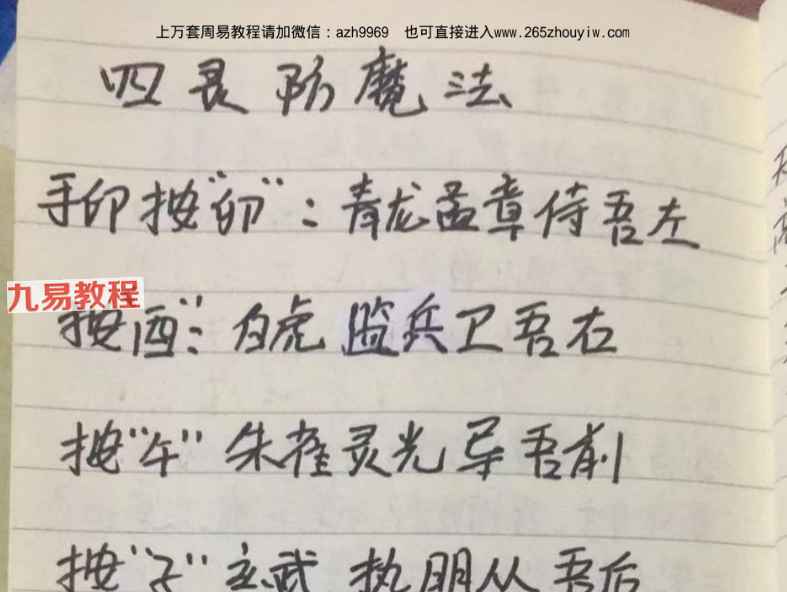 上万套周易教程请加微信：azh9969 也可直接进入www.265zhouyiw.com
四灵防魔法
手印按"卯"：青龙孟章侍吾左
九易教程
按酉"：白虎监兵卫吾右
按"午"朱雀灵光导吾前
按"子"玄武执明从吾后